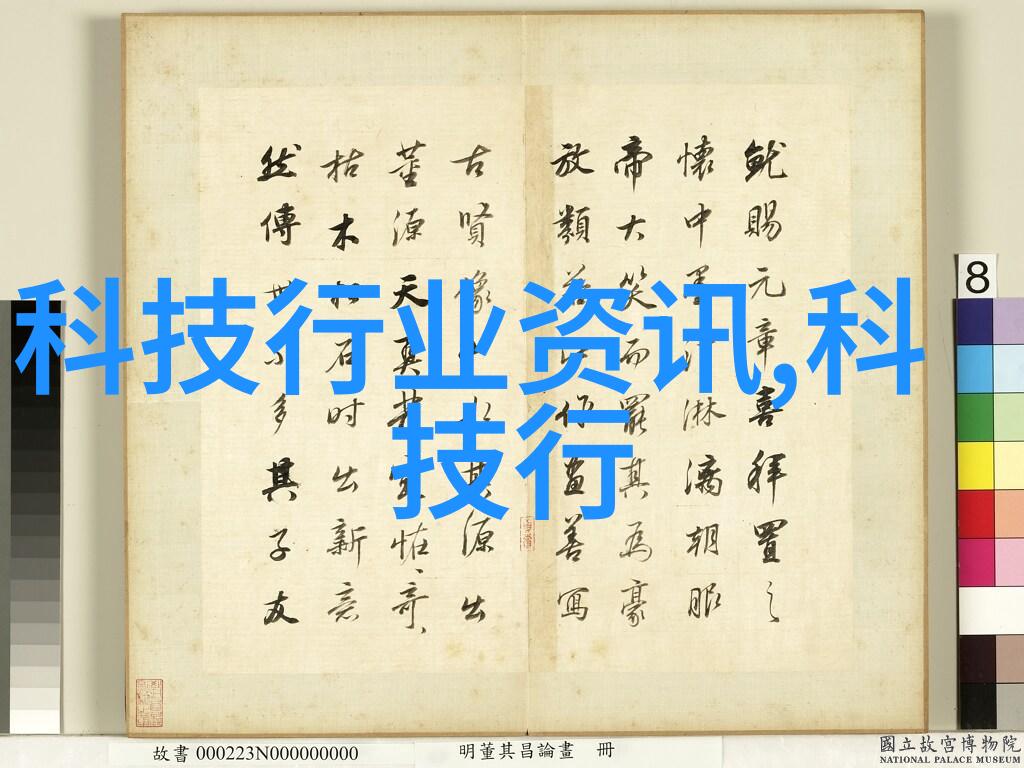 科技行业资讯,科
技行
就賜元章喜拜置之
懷中墨汁淋漓朝服
帝大笑而罷其為豪
放類若此作畫善寫
古賢像其源出
董源天真怪、奇、
枯木松石時出新意
然傳世不多其子友
8
故書 000223N000000000
明董其昌論畫 冊
國立故宮博物院
NATIONAL PALACE MUSEUM